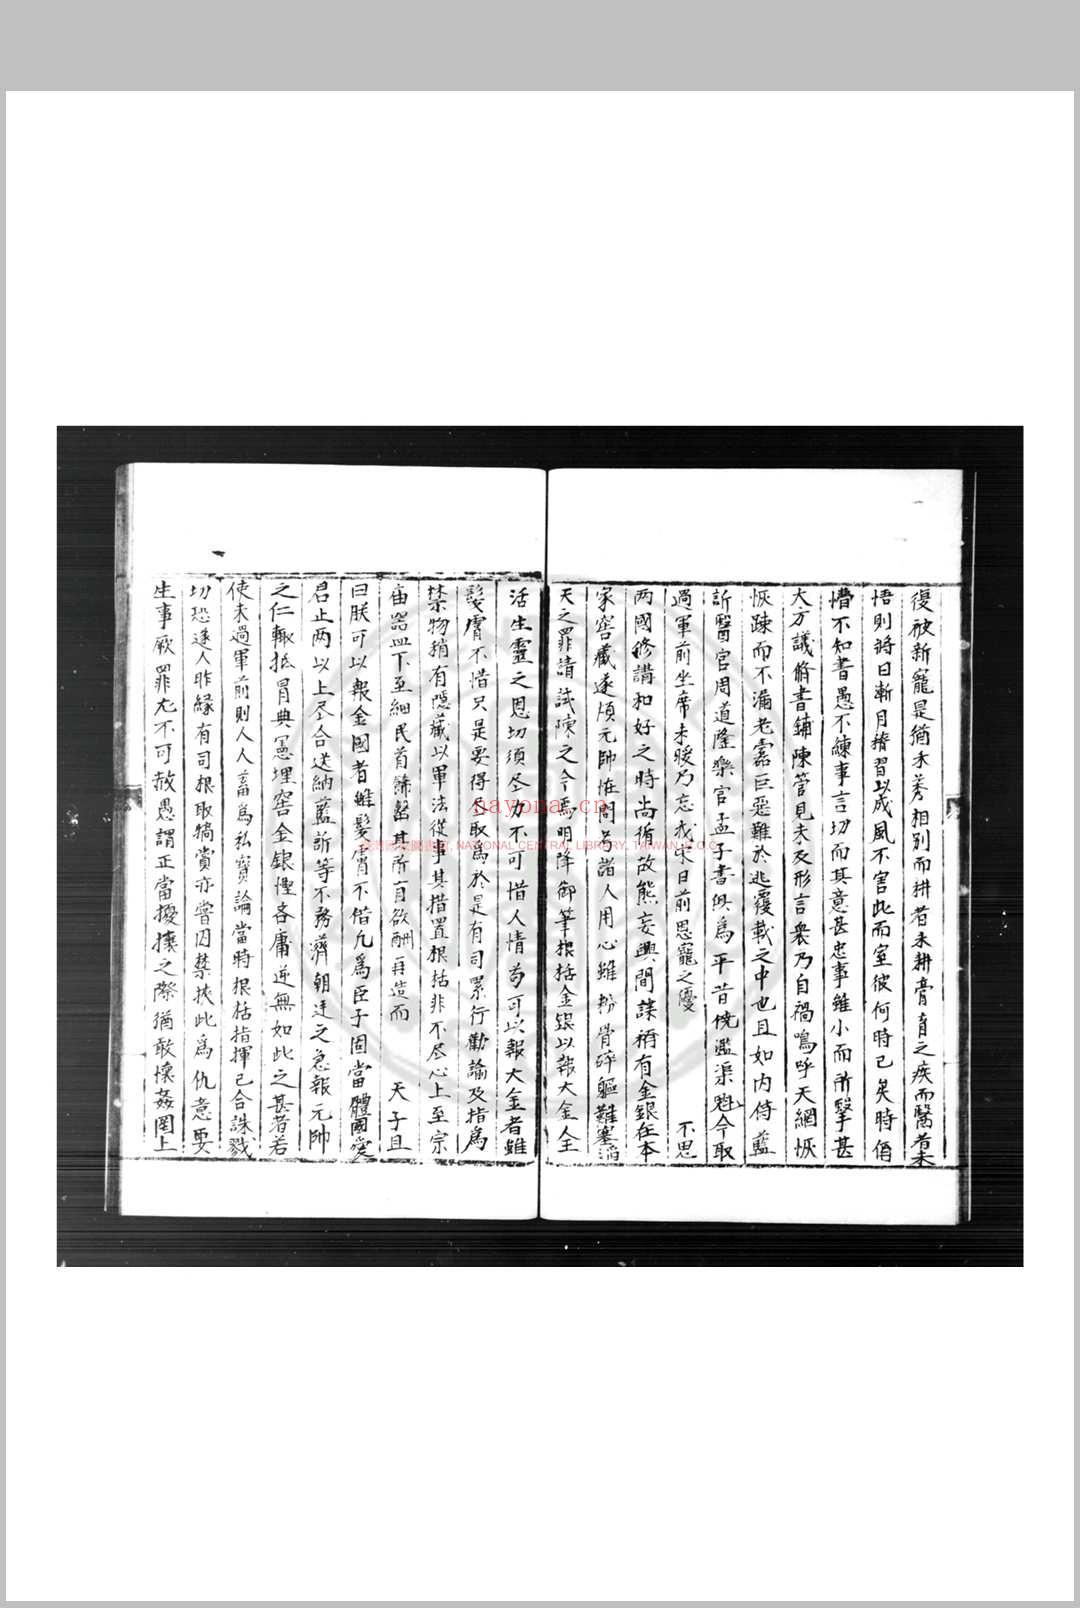 復被新寵是猶禾莠相別而耕者未耕膏肓之疾而醫者未
悟則將日漸月積習以成風不害此而室彼何時已矣時偆
懵不知書愚不練事言切而其意甚忠事雖小而所擊甚
大方議脩書鋪陳管見未及形言衆乃自禍嗚呼天網恢
恢踈而不漏老蠧巨惡難於逃覆載之中也且如内侍藍
訢醫官周道隆樂官孟子書俱為平昔僥濫渠魁今取
過軍前坐席未暖乃忘我宋日前恩寵之優 不思
兩國修講和好之時尚循故態妄興間諜稱有金銀在本
家窖藏遂煩元帥恠問若諸人用心雖粉骨碎軀難塞滔
天之罪請試陳之今焉明降御筆根括金銀以報大金人全
活生靈之恩切須尽力不可惜人情苟可以報大金者雖
髮膚不惜只是要得趂取為於是有司累行勸諭及指為
禁物稍有隱藏以軍法從事其措置根括非不尽心上至宗
庙噐皿下至細民首飾罄其所有欲酬再造而 天子且
曰朕可以報金國者雖髮膚不惜凡為臣子固當體國愛
君止两以上尽合送納藍訢等不務濟朝廷之急報元帥
之仁輙抵冒典憲埋窖金銀慳吝庸逆無如此之甚者若
使未過軍前則人人畜為私寶論當時根括指揮已合誅戮
切恐逐人昨緣有司根取犒賞亦嘗囚禁挾此為仇意要
生事厥罪尤不可赦愚謂正當擾攘之際猶敢懷姦罔上
nayona.cn
NATIONAL CENTRAL LIBRARY, TAIWAN, R.O.C.